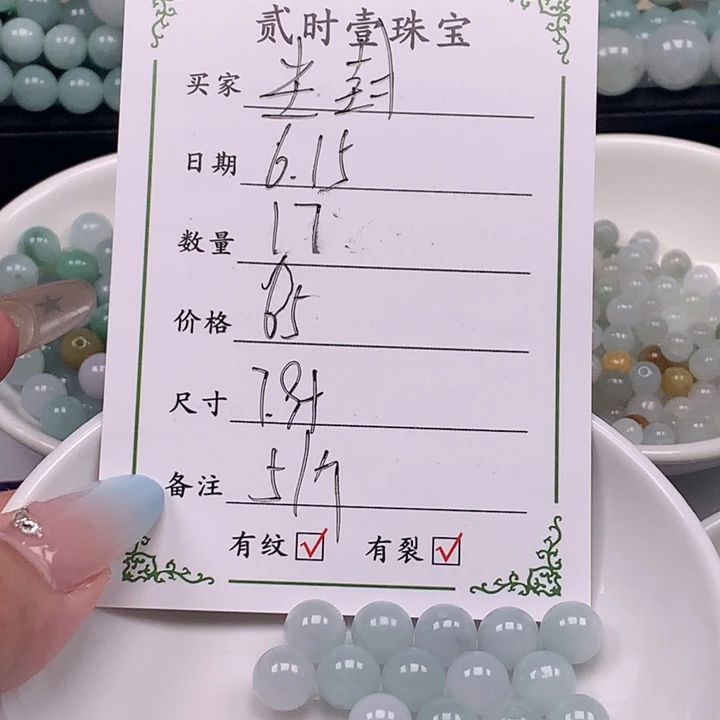 贰时壹珠宝
买家
日期 6.15
数量 17
价格 85
尺寸
备注
有纹 ☑ 有裂 ☑